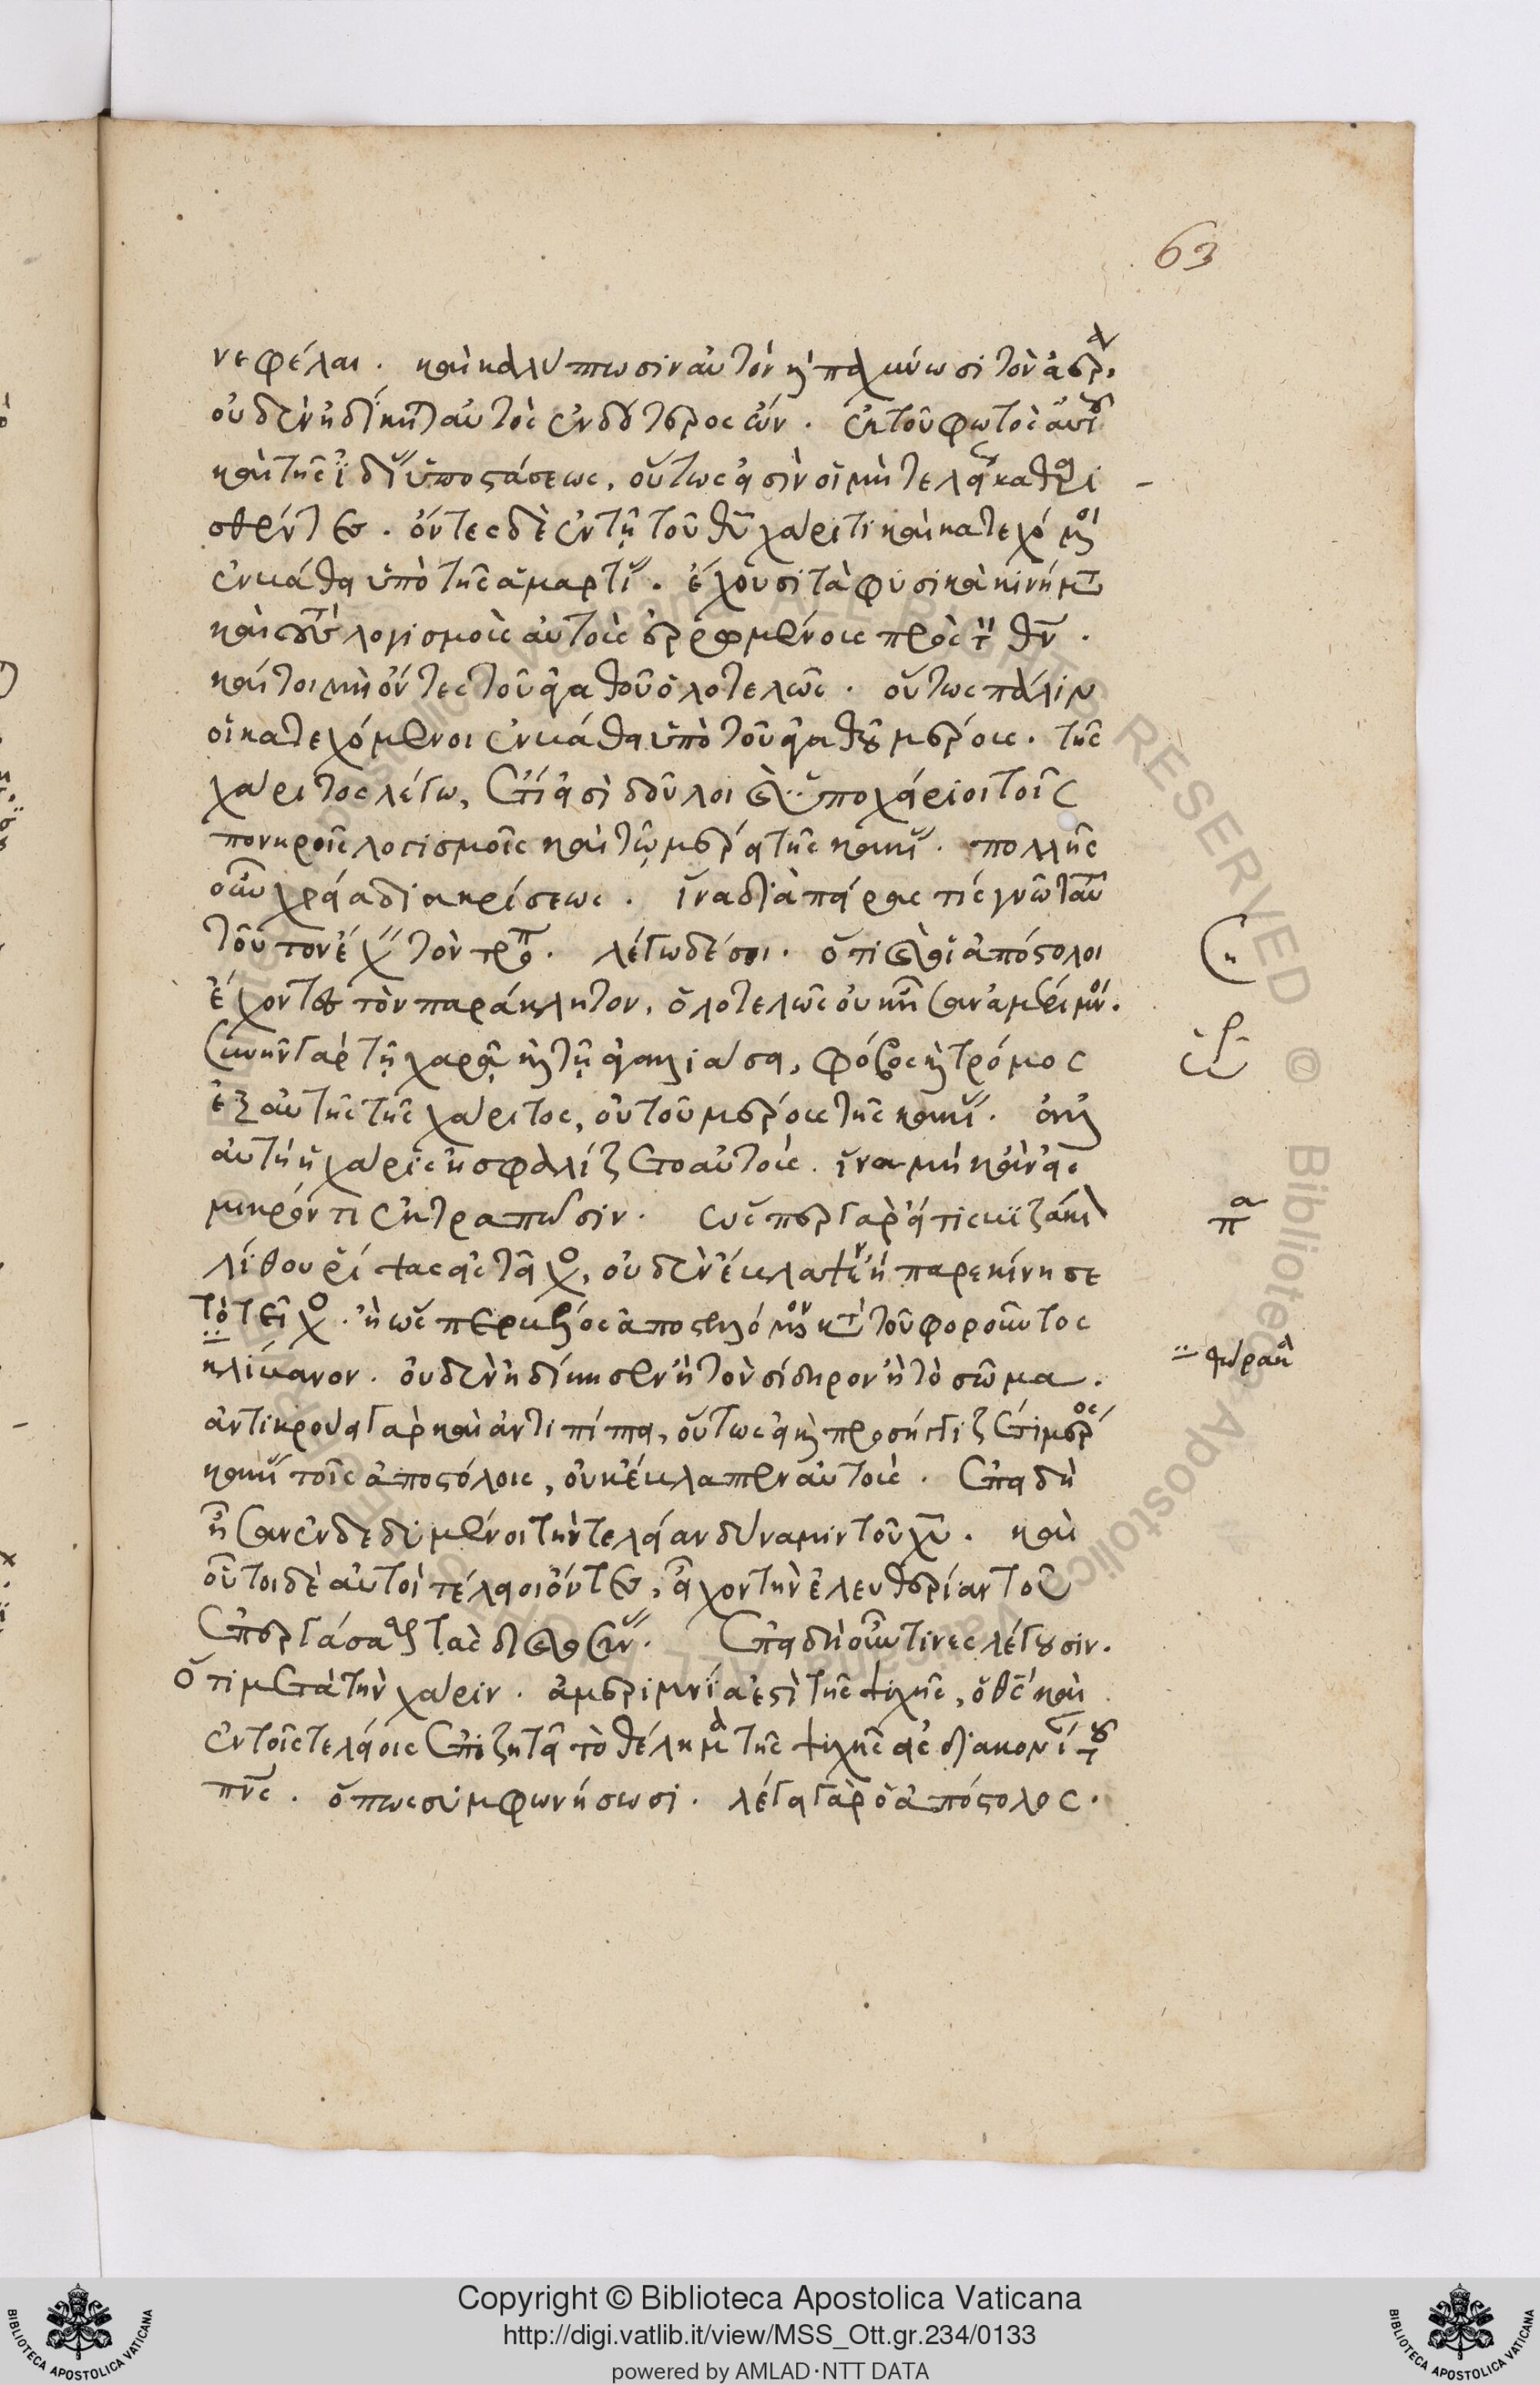 63
νεφέλαι. καὶ καλύπτωσιν αὐτόν κ(αὶ) παχύνωσι τὸν ἀέρα,
οὐδὲν ἠδίκηται αὐτὸς ἐνδότερος ὤν. ἐκ τοῦ φωτὸς αὐτοῦ
καὶ τῆς ἰδίας ὑποστάσεως, οὕτως εἰσὶν οἱ μὴ τελείως καθαρι
σθέντες. ὄντες δὲ ἐν τῇ τοῦ θῦ χάριτι καὶ κατεχόμενοι
ἐν βάθει ὑπὸ τῆς ἁμαρτίας. ἔχουσι τὰ φυσικὰ κινήματα
καὶ τοὺς λογισμοὺς αὐτοῖς ἐρρωμένους πρὸς τὸν θν.
καίτοι μὴ ὄντες τοῦ ἀγαθοῦ ὁλοτελῶς. οὕτως πάλιν
οἱ κατεχόμενοι ἐν βάθει ὑπὸ τοῦ ἀγαθοῦ μέρους. τῆς
χάριτος λέγω, ἔτι εἰσὶ δοῦλοι καὶ ὑποχείριοι τοῖς
πονηροῖς λογισμοῖς καὶ τῷ μέρει τῆς κακίας. πολλῆς
οὖν χρεία διακρίσεως. ἵνα διὰ πείρας τίς γνῶ ταῦ
τοῦτον ἔχειν τὸν τρόπον. λέγω δέ σοι. ὅτι καὶ οἱ ἀπόστολοι
ἔχοντες τὸν παράκλητον, ὁλοτελῶς οὐκ ἦσαν ἀμέριμνοι.
συνῆν γὰρ τῇ χαρᾷ καὶ τῇ ἀγαλλιάσει, φόβος καὶ τρόμος
ἐξ αὐτῆς τῆς χάριτος, οὐ τοῦ μέρους τῆς κακίας. ἀλλ
αὐτὴ ἡ χάρις ἠσφαλίζετο αὐτούς. ἵνα μὴ κἂν εἰς
μικρόν τι ἐκτραπῶσιν. ὥσπερ γὰρ εἴ τις
λίθου ῥίψας εἰς τεῖχος, οὐδὲν ἔβλαψεν ἢ παρεκίνησε
τὸ τεῖχος. ἢ ὡς περ βέλος ἀποστελλόμενον κατὰ τοῦ φοροῦντος
κλίβανον. οὐδὲν ἠδίκησεν ἢ τὸν σίδηρον ἢ τὸ σῶμα.
ἀντικρούει γὰρ καὶ ἀντιπίπτει, οὕτως εἰ καὶ προσήγγιζέ τι μέρος
κακίας τοῖς ἀποστόλοις, οὐκ ἔβλαπτεν αὐτούς. ἐπειδὴ
ἦσαν ἐνδεδυμένοι τὴν τελείαν δύναμιν τοῦ χῦ. καὶ
οὗτοι δὲ αὐτοὶ τέλειοι ὄντες, εἶχον τὴν ἐλευθερίαν τοῦ
ἐπεργάσασθαι τὰς δικαιοσύνας. ἐπειδὴ οὖν τινες λέγουσιν.
ὅτι μετὰ τὴν χάριν. ἀμεριμνία ἐστὶ τῆς ψυχῆς, ὁ θς καὶ
ἐν τοῖς τελείοις ἐπιζητεῖ τὸ θέλημα τῆς ψυχῆς εἰς διακονίαν τοῦ
πνς. ὅπως συμφωνήσωσι. λέγει γὰρ ὁ ἀπόστολος.
θώρακα
Copyright © Biblioteca Apostolica Vaticana
http://digi.vatlib.it/view/MSS_Ott.gr.234/0133
powered by AMLAD·NTT DATA